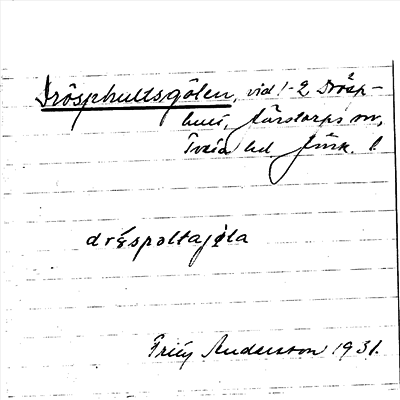 Drösphultsgölen, vid 1-2 Drösp-
hult, Barstorps sn,
Tveta hd Jönk. l
dröspoltajöla
Fritz Andersson 1931.